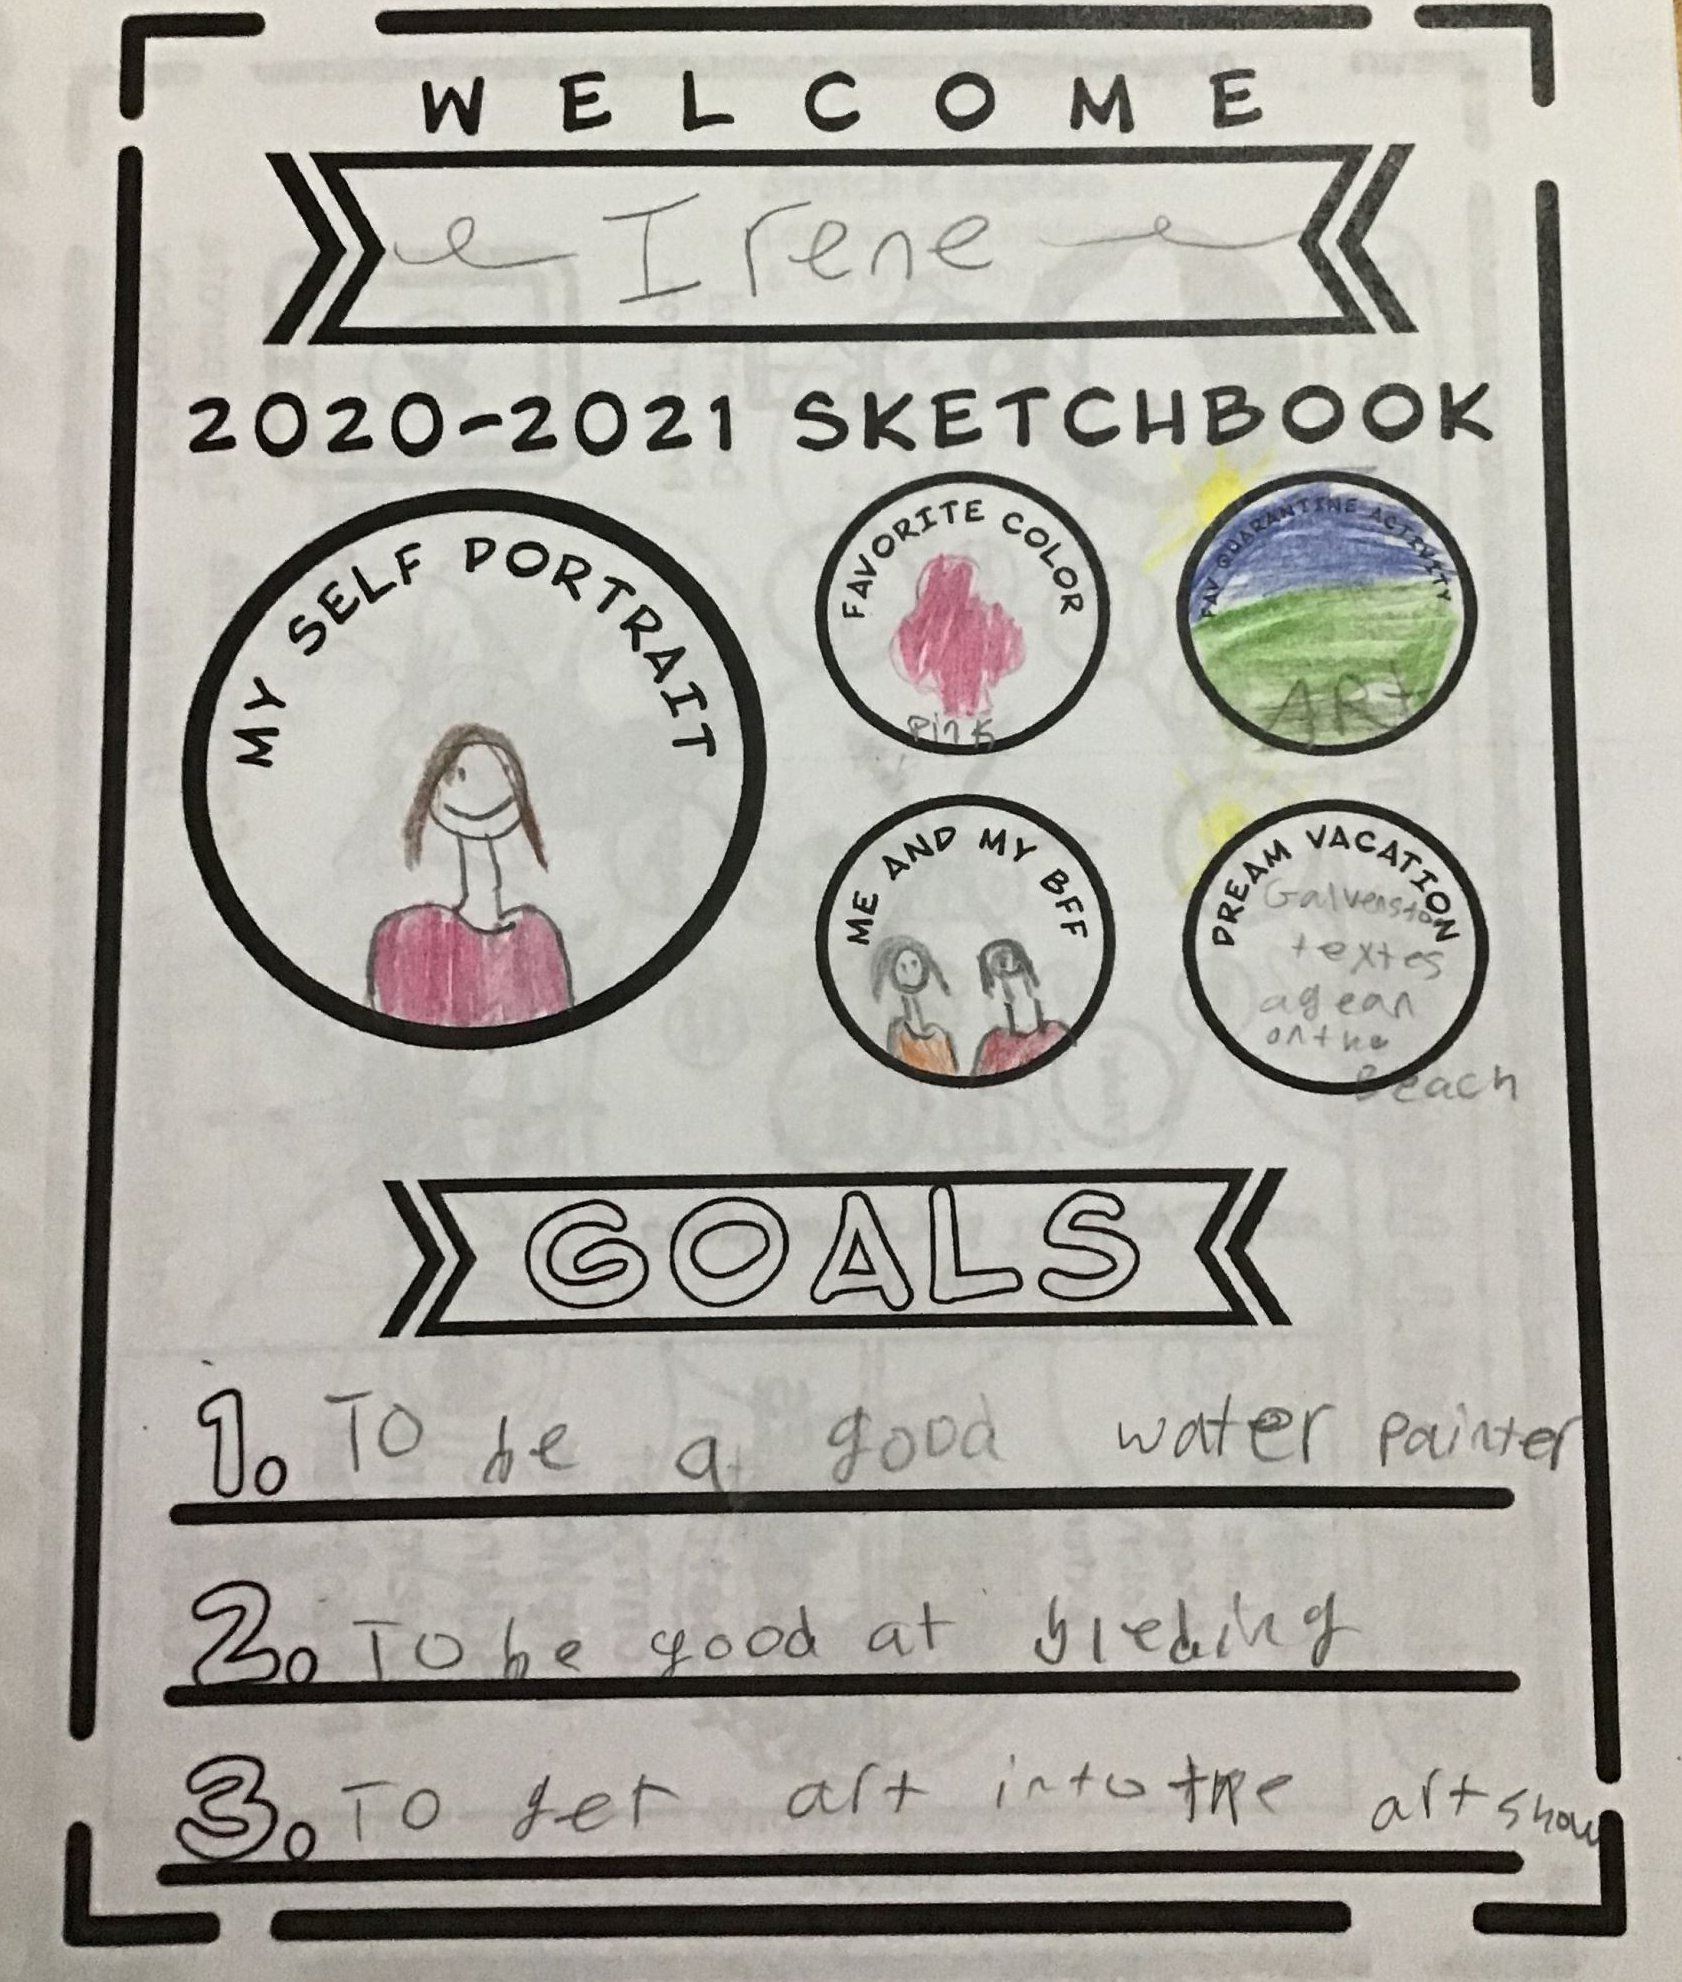 WELCOME
Irene
2020-2021 SKETCHBOOK
MY SELF PORTRAIT
FAVORITE COLOR
Pink
FAV QUARANTINE ACTIVITY
ARt
ME AND MY BFF
DREAM VACATION
Galvenston
textes
agean
on the
Beach
GOALS
1. To be a good water painter
2. To be good at bleding
3. To get art into the art show